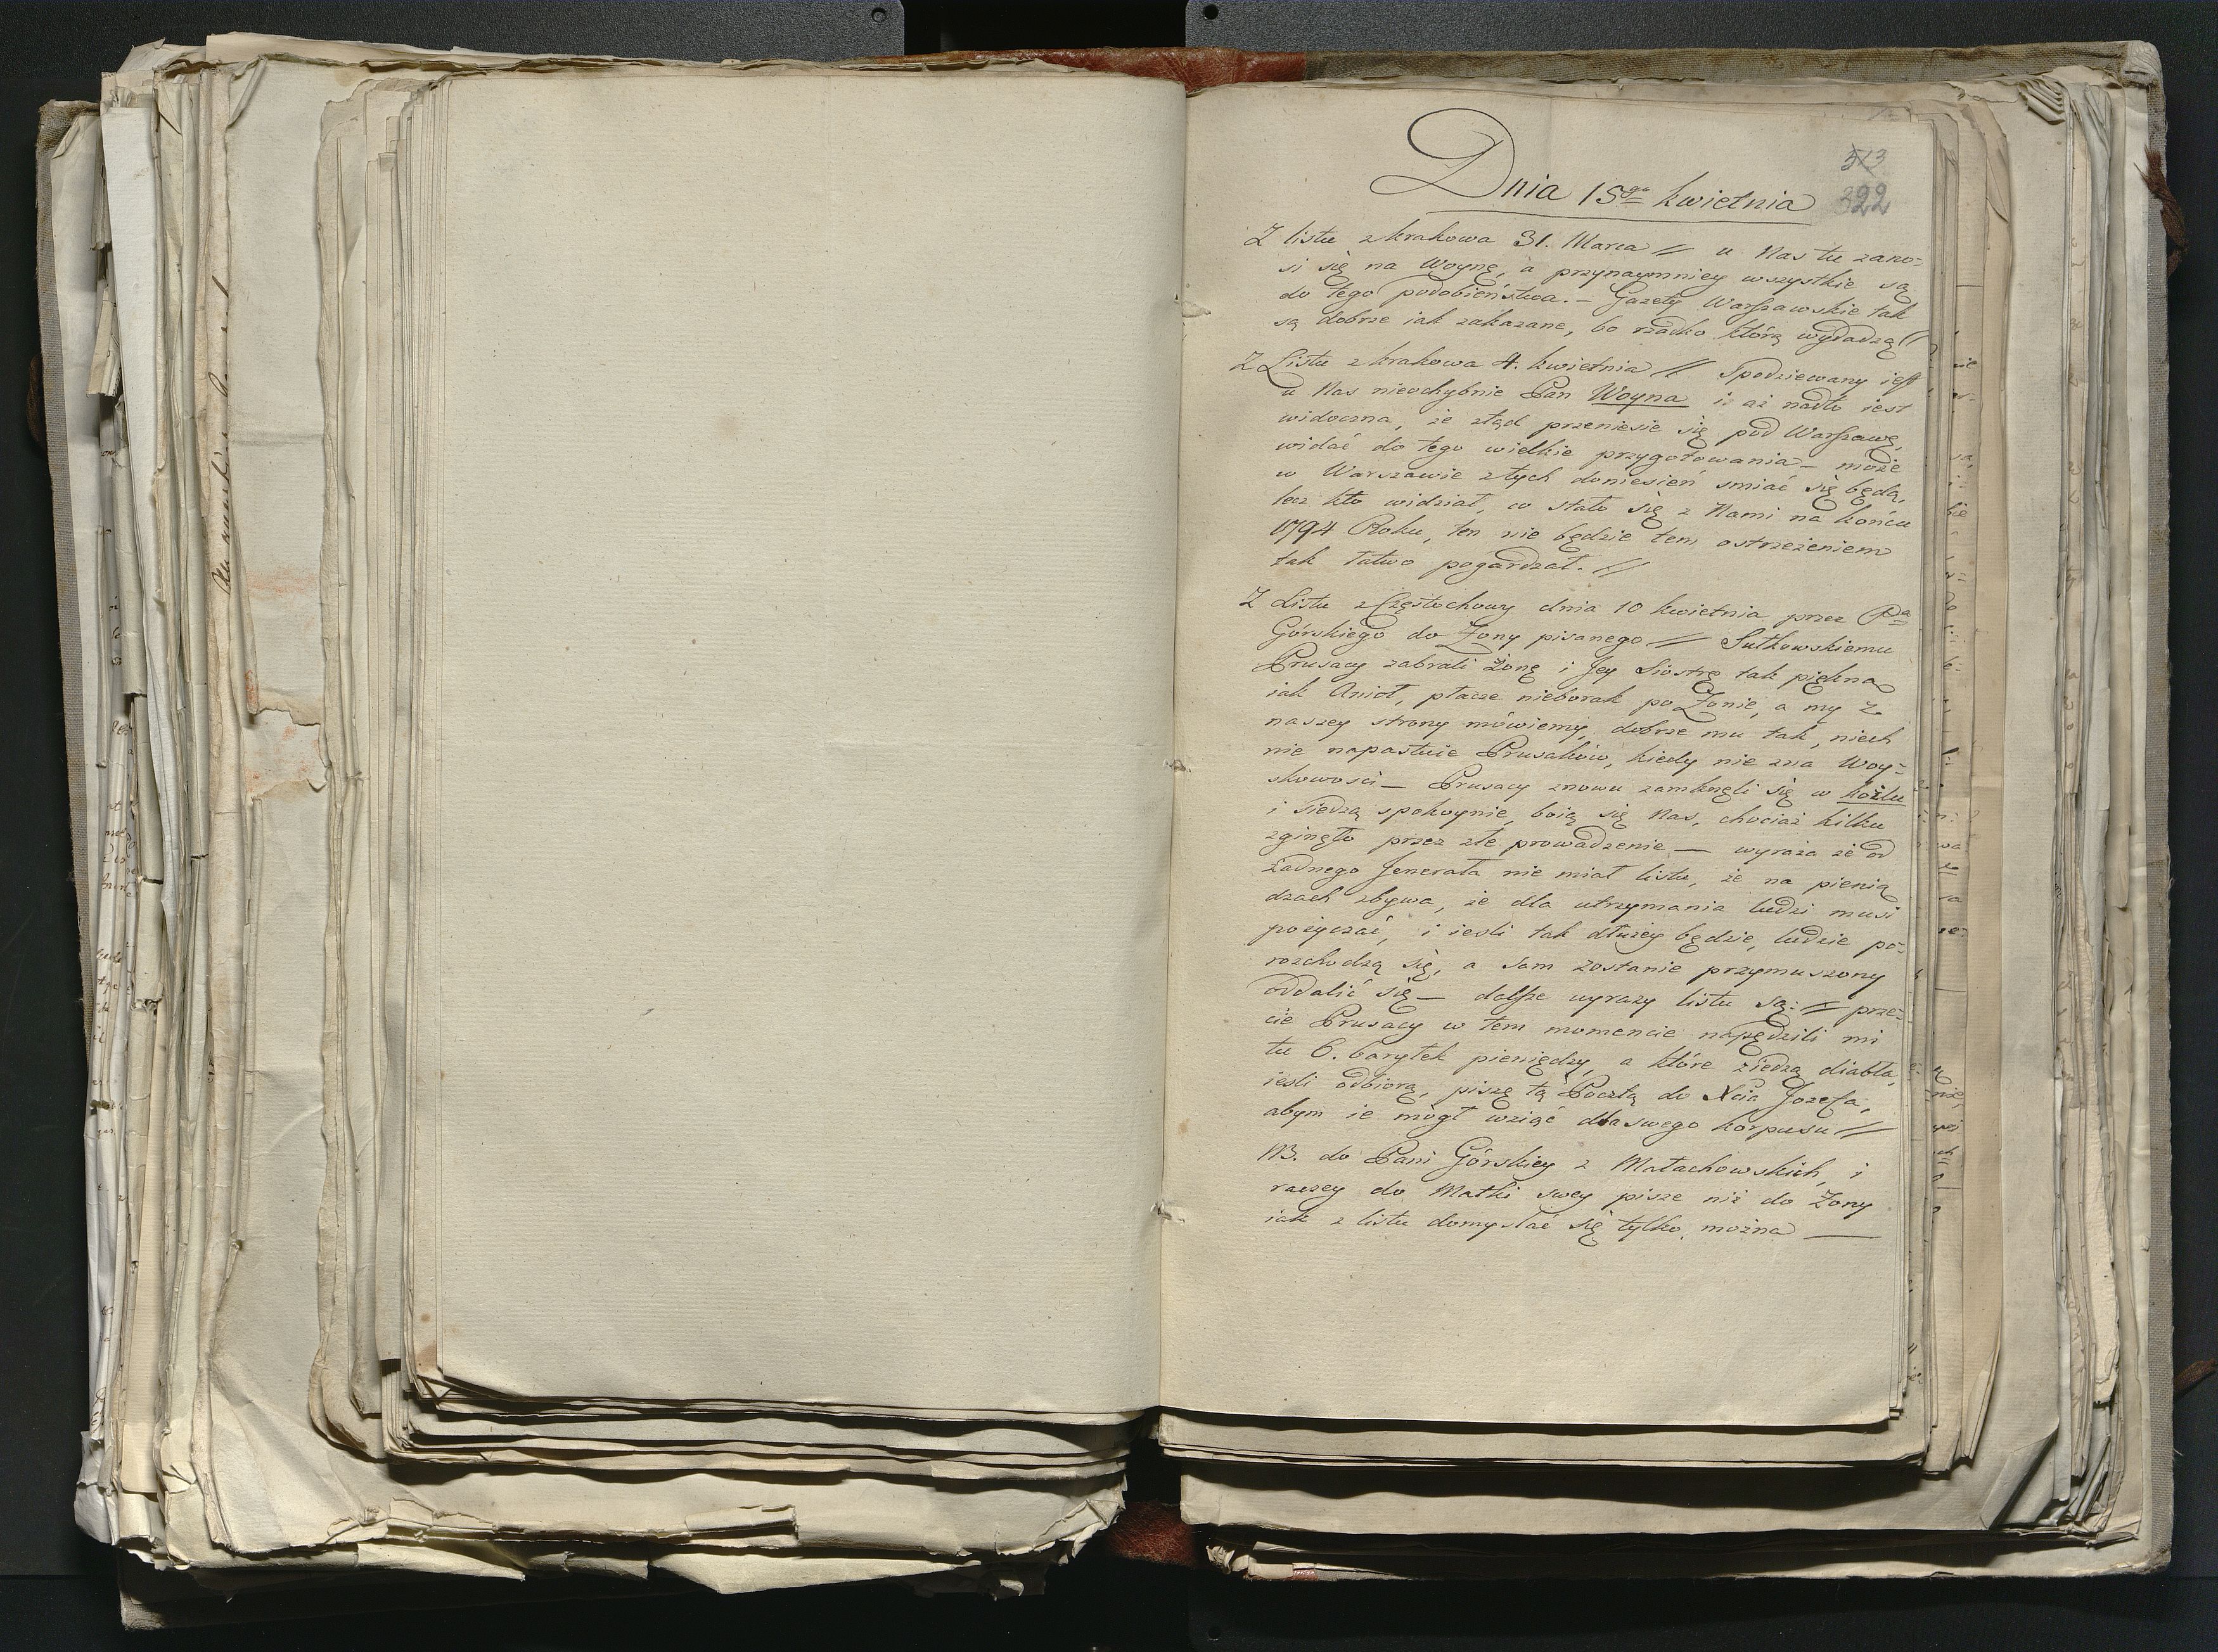 513
322
Dnia 15go kwietnia
Z listu z krakowa 31. Marca // u Nas tu zano-
si się na Woynę, a przynaymniey wszystkie są
do tego podobieństwa. — Gazety Warszawskie tak
są dobrze iak zakazane, bo rzadko którą wydadzą //
Z Listu z krakowa 4. kwietnia // Spodziewany iest
u Nas nieochybnie Pan Woyna i aż nadto iest
widoczna, że ztąd przeniesie się pod Warszawę,
widać do tego wielkie przygotowania — może
w Warszawie z tych doniesień smiać się będą,
lecz kto widział, co stało się z Nami na końcu
1794 Roku, ten nie będzie tem ostrzeżeniem
tak łatwo pogardzał. //
Z Listu z Częstochowy dnia 10 kwietnia przez Pa
Górskiego do Żony pisanego // Sułkowskiemu
Prusacy zabrali Żonę i Jey Siostrę tak piękną
iak Anioł, płacze nieborak po Żonie, a my z
naszey strony mówiemy, dobrze mu tak, niech
nie napastuie Prusaków, kiedy nie zna Woy-
skowosci — Prusacy znowu zamknęli się w koźlu
i siedzą spokoynie, boią się Nas, chociaż kilku
zginęło przez złe prowadzenie — wyraża że od
żadnego Jenerała nie miał listu, że na pienią
dzach zbywa, że dla utrzymania ludzi musi
pożyczać, i iesli tak dłużey będzie, ludzie po-
rozchodzą się, a sam zostanie przymuszony
oddalić się — dalsze wyrazy listu są: // prze-
cie Prusacy w tem momencie napędzili mi
tu 6. baryłek pieniędzy, a które ziedzą diabła,
iesli odbiorą, piszę tą Pocztą do Xcia Jozefa,
abym ie mógł wziąć dla swego korpusu //
NB. do Pani Górskiey z Małachowskich, i
raczey do Matki swey pisze niż do Żony
iak z listu domyslać się tylko można —